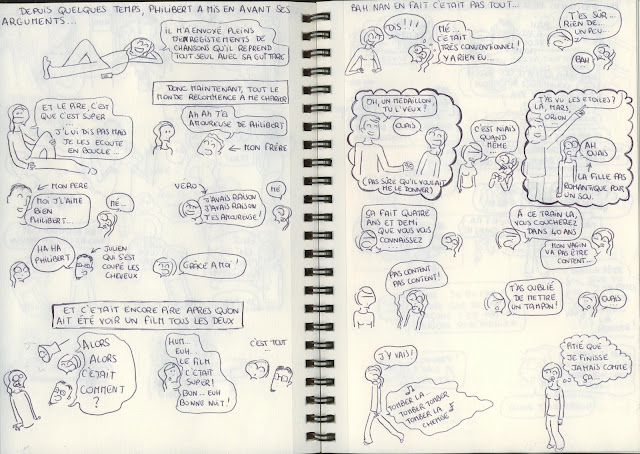 DEPUIS QUELQUES TEMPS, PHILIBERT A MIS EN AVANT SES
ARGUMENTS...
IL M'A ENVOYÉ PLEINS
D'ENREGISTEMENTS DE
CHANSONS QU'IL REPREND
TOUT SEUL AVEC SA GUITARE
ET LE PIRE, C'EST
QUE C'EST SUPER
... J'LUI DIS PAS MAIS
JE LES ECOUTE
EN BOUCLE...
DONC MAINTENANT, TOUT LE
MONDE RECOMMENCE A ME CHARIER
AH AH T'ES
AMOUREUSE DE PHILIBERT
MON FRÈRE
MON PERE
MOI J'L'AIME
BIEN
PHILIBERT...
MÉ...
VERO
J'AVAIS RAISON
J'AVAIS RAISON
T'ES AMOUREUSE!
MÉ
HA HA
PHILIBERT
JULIEN
QUI S'EST
COUPÉ LES
CHEVEUX
GRÂCE A MOI!
ET C'ETAIT ENCORE PIRE APRES QU'ON
AIT ÉTÉ VOIR UN FILM TOUS LES DEUX
ALORS
ALORS
C'ÉTAIT
COMMENT
?
HUM...
EUH...
LE FILM
C'ÉTAIT
SUPER!
BON... EUH
BONNE NUIT!
C'EST TOUT
BAH NAN EN FAIT C'ÉTAIT PAS TOUT...
DIS!!!
MÉ...
C'ÉTAIT
TRÈS CONVENTIONNEL!
Y'A RIEN EU...
T'ES SÛR...
RIEN DE...
UN PEU...
BAH...
OH, UN MEDAILLON
TU L'VEUX?
OUAIS
(PAS SÛRE QU'IL VOULAIT
ME LE DONNER)
C'EST NIAIS
QUAND
MÊME
T'AS VU LES ETOILES?
LÀ, MARS,
ORION...
AH
OUAIS
LA FILLE PAS
ROMANTIQUE POUR
UN SOU.
ÇA FAIT QUATRE
ANS ET DEMI
QUE VOUS VOUS
CONNAISSEZ
A CE TRAIN LA,
VOUS COUCHEREZ
DANS 40 ANS
MON VAGIN
VA PAS ÊTRE
CONTENT...
PAS CONTENT
PAS CONTENT!
T'AS OUBLIÉ
DE METTRE
UN TAMPON!
OUAIS
J'Y VAIS!
TOMBER LA
TOMBER TOMBER
TOMBER LA
CHEMISE
PITIÉ QUE
JE FINISSE
JAMAIS COMME
ÇA...